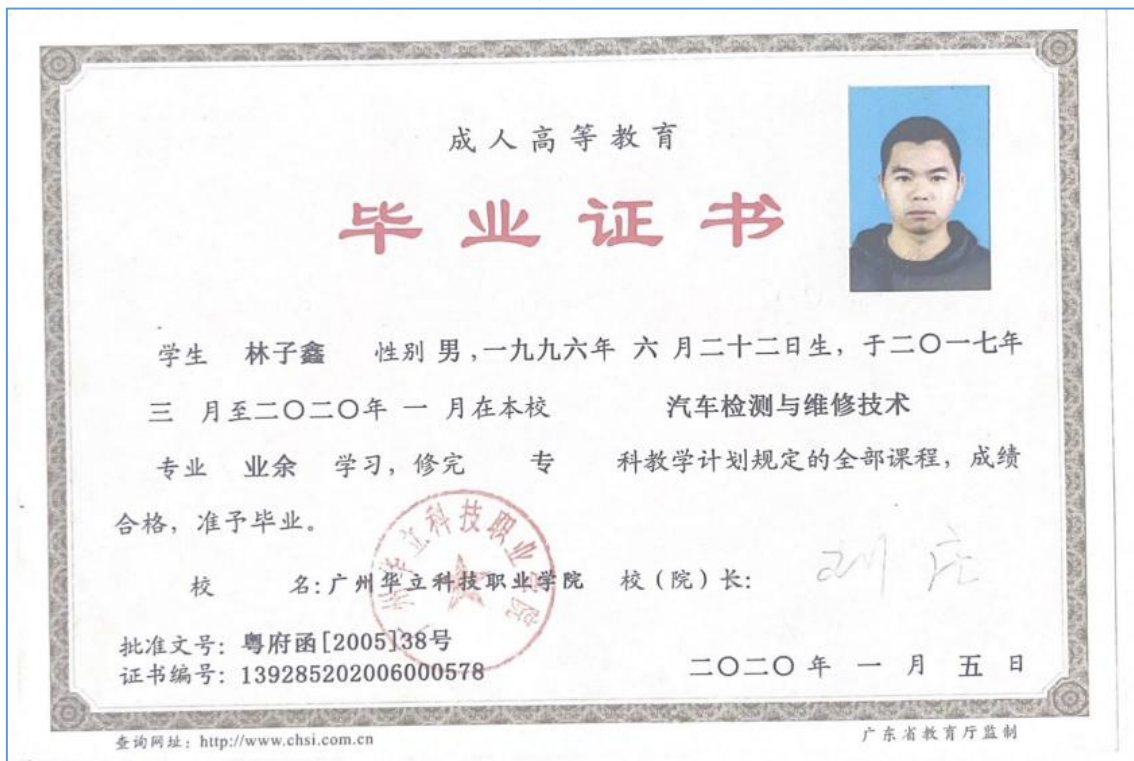 成人高等教育
毕业证书
学生 林子鑫 性别 男,一九九六年 六 月二十二日生,于二〇一七年
三 月至二〇二〇年 一 月在本校 汽车检测与维修技术
专业 业余 学习,修完 专 科教学计划规定的全部课程,成绩
合格,准予毕业。
广州华立科技职业学院
校 名:广州华立科技职业学院 校(院)长:
批准文号:粤府函[2005]38号
证书编号:139285202006000578
二〇二〇年 一 月 五 日
查询网址:http://www.chsi.com.cn
广东省教育厅监制